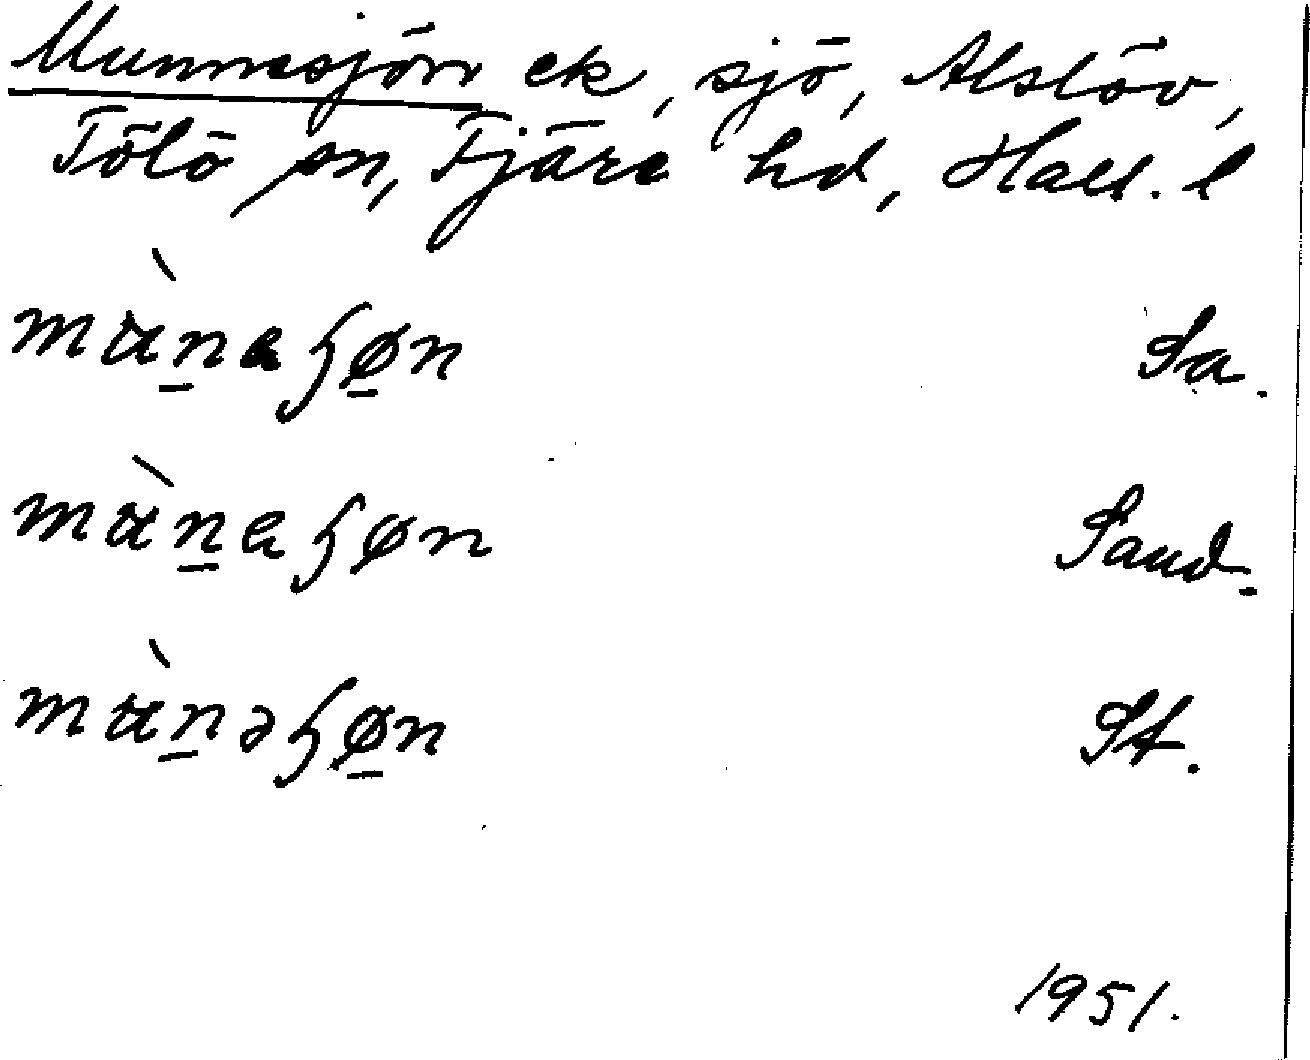 Munnesjön ek, sjö, Alslöv,
Tölö sn, Fjäre hd, Hall. l
mùn̲aɧø̲n Sa.
mùn̲aɧøn Sand.
mùn̲əɧø̲n St.
1951.